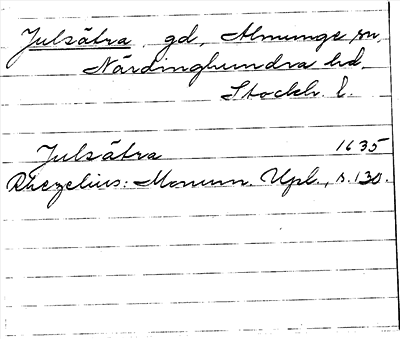 Julsätra, gd, Almunge sn,
Närdinghundra hd.
Stockh. l.
Julsätra 1635
Rhezelius: Monum. Upl., s. 130.